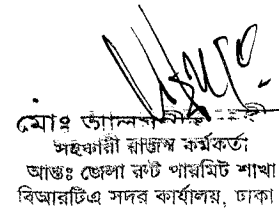 মোঃ
সহকারী রাজস্ব কর্মকর্তা
আন্তঃ জেলা রুট পারমিট শাখা
বিআরটিএ সদর কার্যালয়, ঢাকা